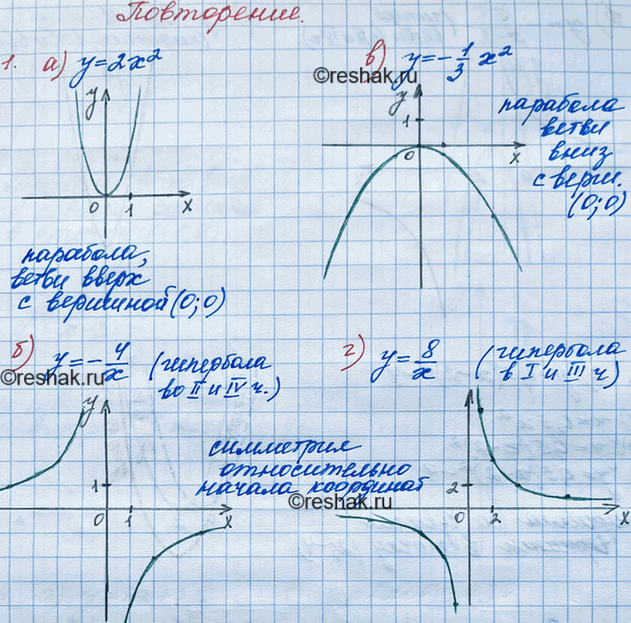 Повторение.
1. а) y=2x²
y
0 1 x
парабола,
ветви вверх
с вершиной (0;0)
в) y=-1/3 x²
©reshak.ru
y
1
0 x
парабола
ветви
вниз
с верш.
(0;0)
©reshak.ru
б) y=-4/x (гипербола
во II и IV ч.)
©reshak.ru
y
1
0 1 x
г) y=8/x (гипербола
в I и III ч)
симметрия
относительно
начала координат
©reshak.ru
2
0 2 x